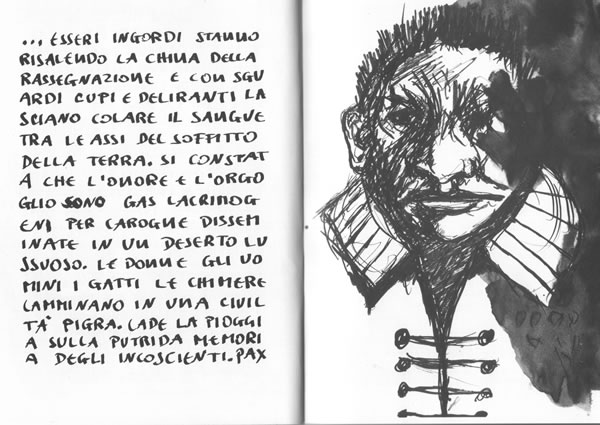 ... ESSERI INGORDI STANNO
RISALENDO LA CHINA DELLA
RASSEGNAZIONE E CON SGU
ARDI CUPI E DELIRANTI LA
SCIANO COLARE IL SANGUE
TRA LE ASSI DEL SOFFITTO
DELLA TERRA. SI CONSTAT
A CHE L'ONORE E L'ORGO
GLIO SONO GAS LACRIMOG
ENI PER CAROGNE DISSEM
INATE IN UN DESERTO LU
SSUOSO. LE DONNE GLI UO
MINI I GATTI LE CHIMERE
CAMMINANO IN UNA CIVIL
TÀ PIGRA. CADE LA PIOGGI
A SULLA PUTRIDA MEMORI
A DEGLI INCOSCIENTI. PAX